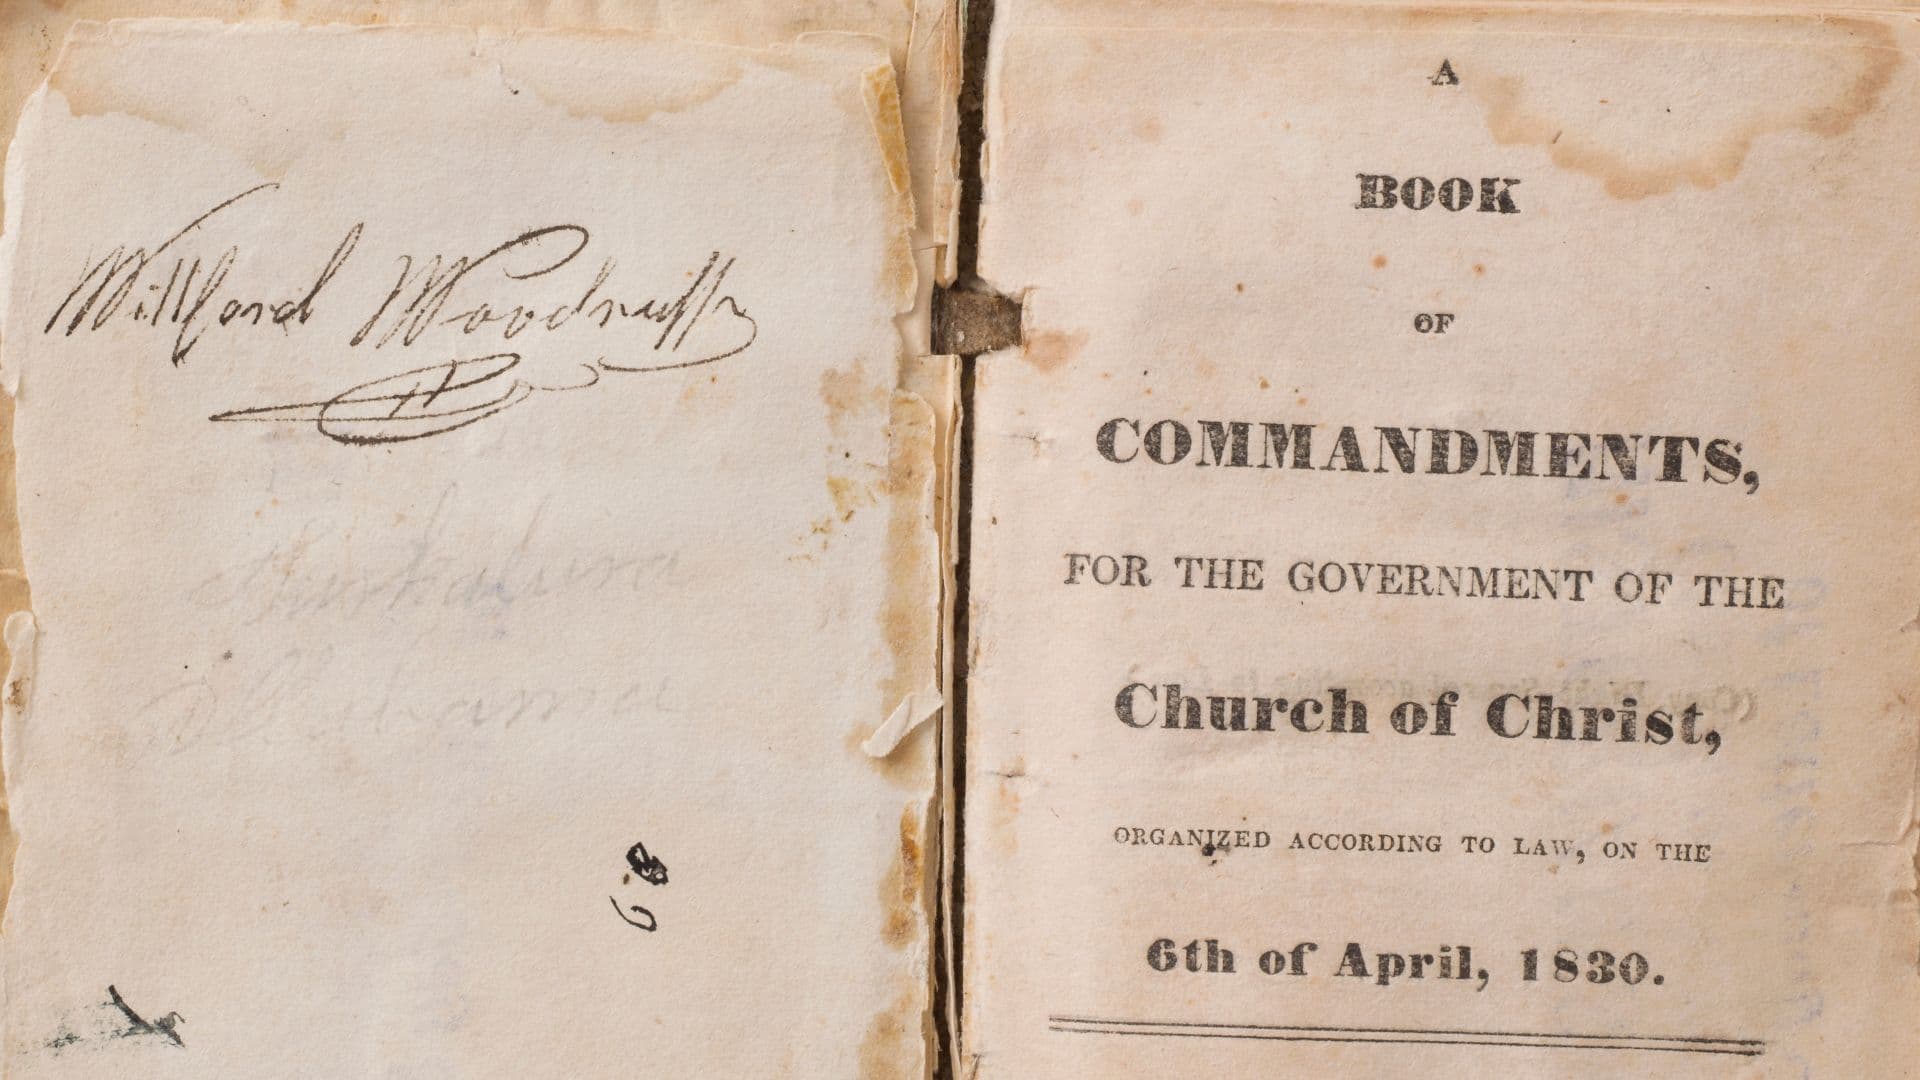 Willford Woodruff
A
BOOK
OF
COMMANDMENTS,
FOR THE GOVERNMENT OF THE
Church of Christ,
ORGANIZED ACCORDING TO LAW, ON THE
6th of April, 1830.